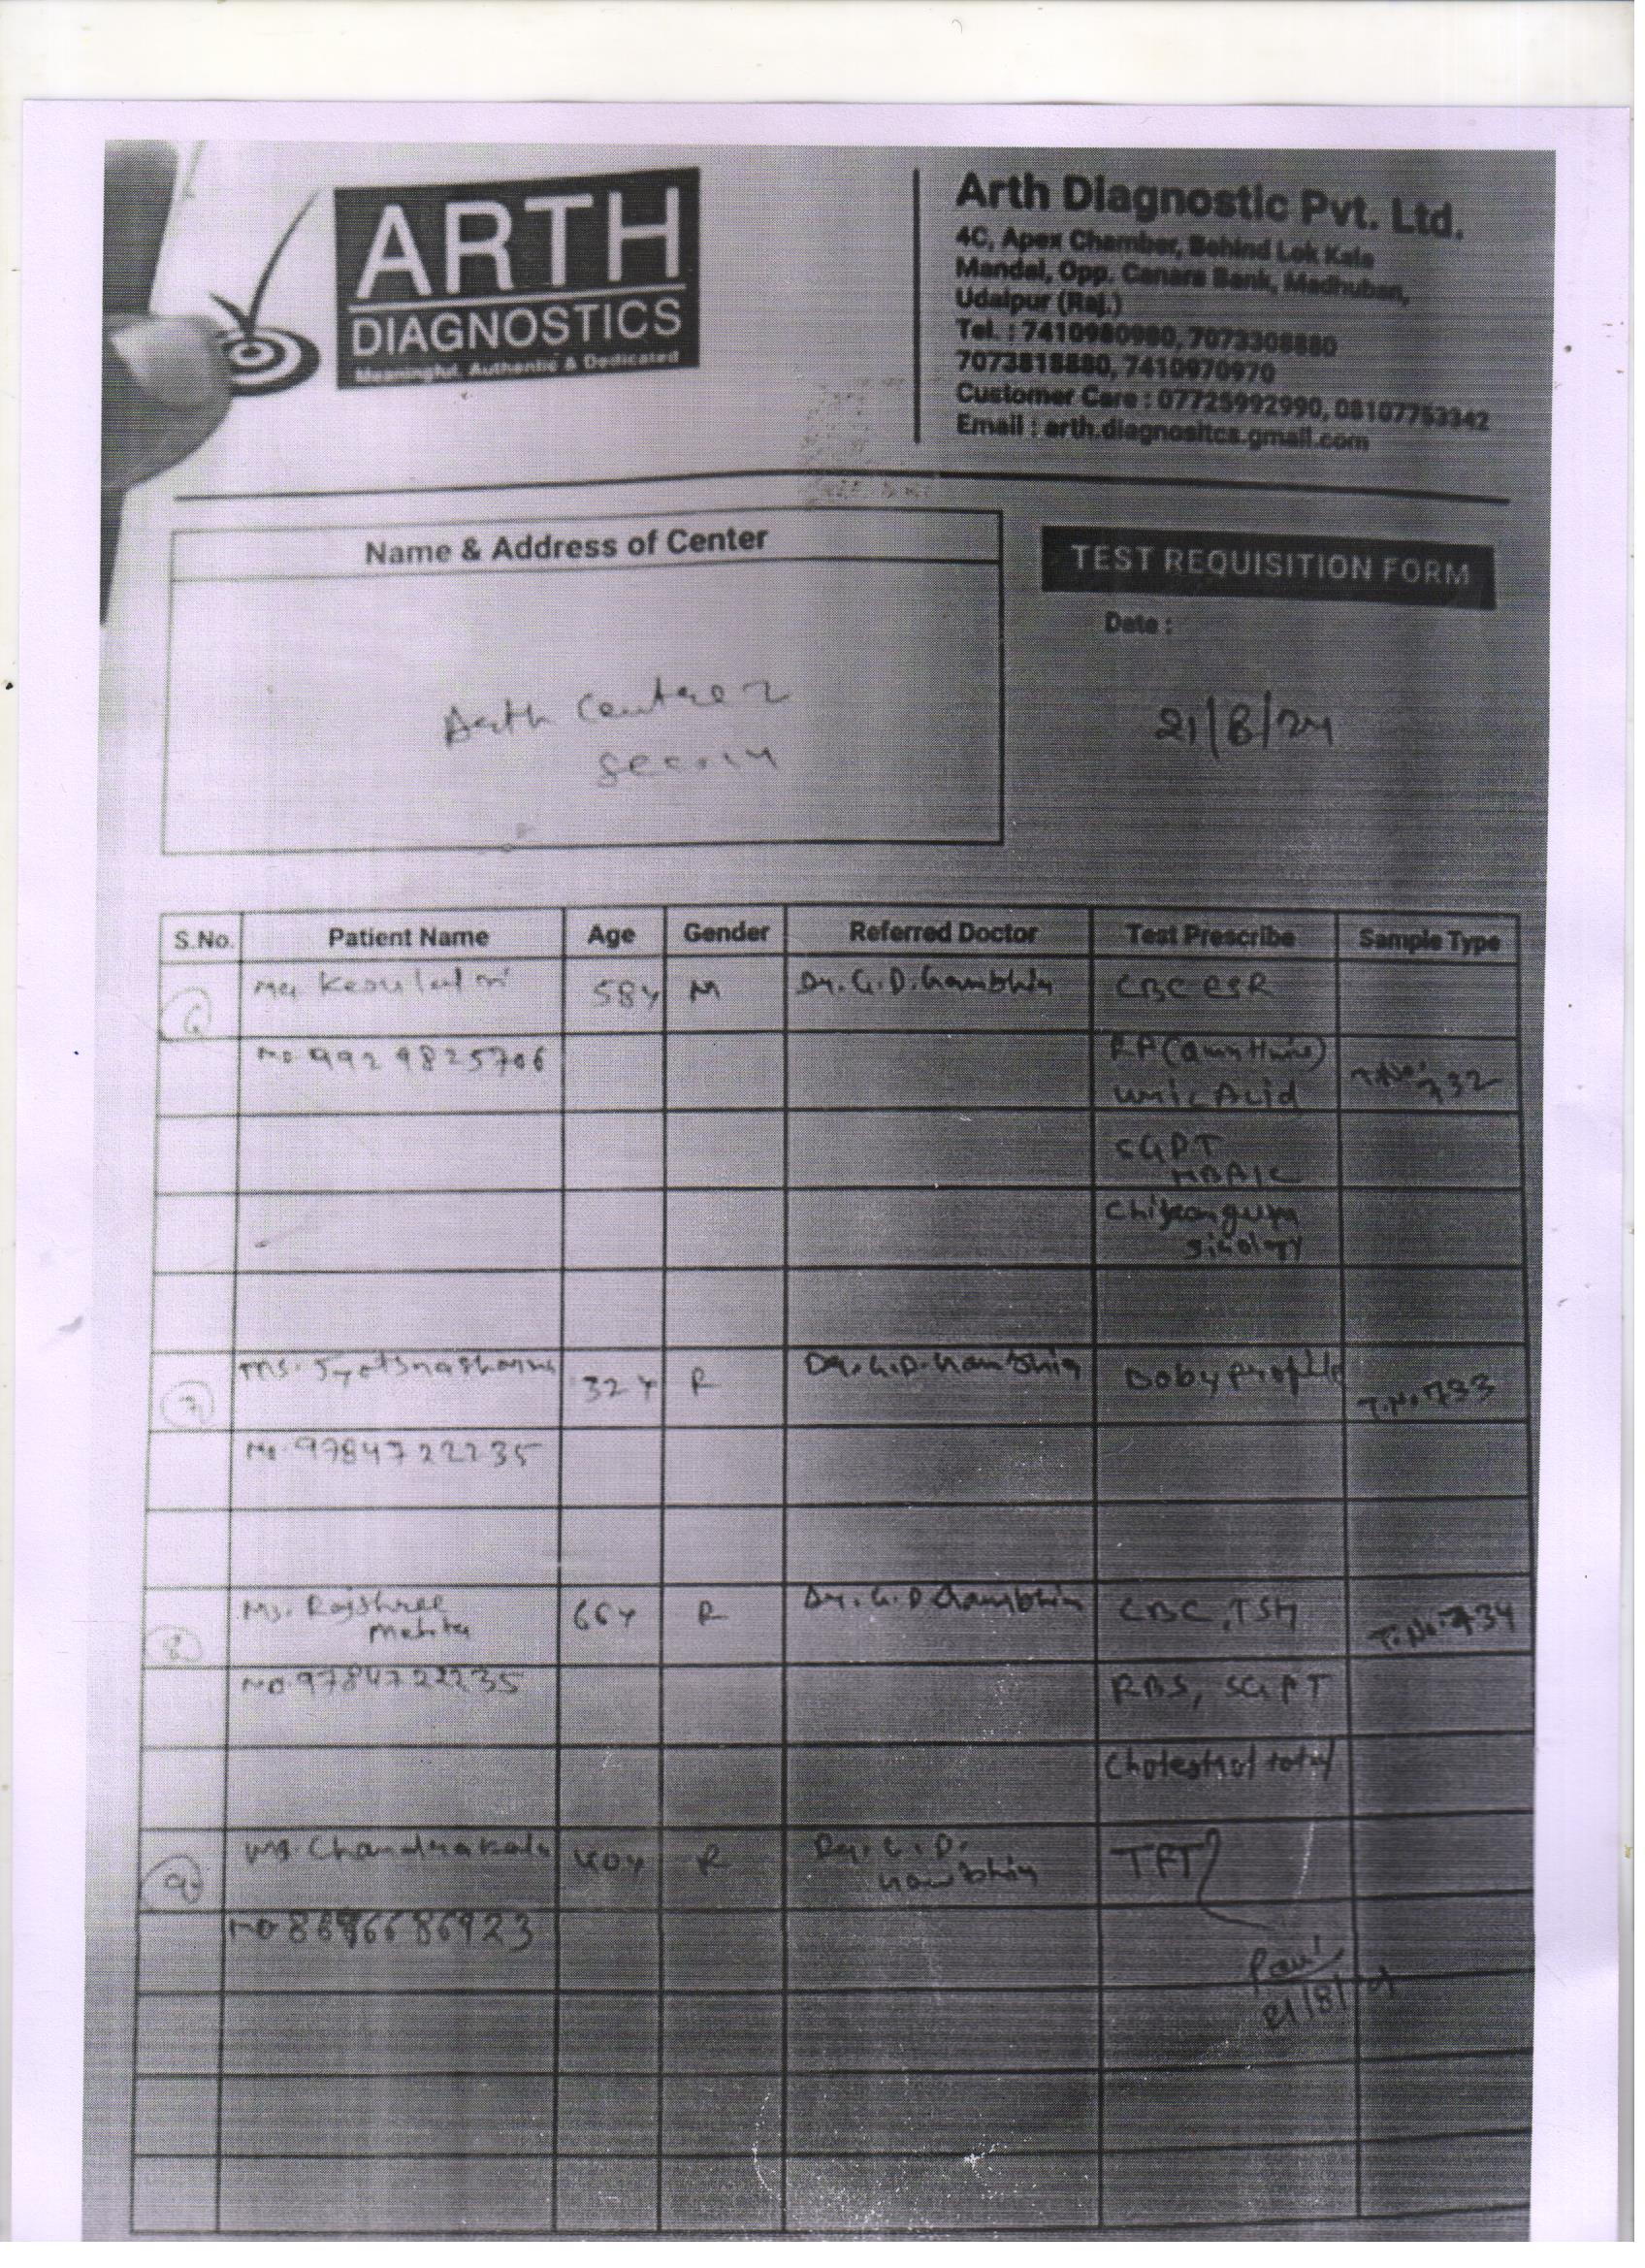 ARTH
DIAGNOSTICS
Meaningful, Authentic & Dedicated
Arth Diagnostic Pvt. Ltd.
4C, Apex Chamber, Behind Lok Kala
Mandal, Opp. Canara Bank, Madhuban,
Udaipur (Raj.)
Tel. : 7410980980, 7073308880
7073818880, 7410970970
Customer Care : 07725992990, 08107753342
Email : arth.diagnositcs.gmail.com
Name & Address of Center
TEST REQUISITION FORM
Date :
Arth Centre 2
21/8/24
S.No. Patient Name Age Gender Referred Doctor Test Prescribe Sample Type
6 58y M Dr. G.D. CBC ESR
No. 9929825706
Uric Acid T.No. 732
SGPT
HBA1C
7 Ms. Jyotsna Sharma 32y F Dr. G.D. Body profile T.No. 733
No. 9784722235
8 Ms. Rajshree 66y F Dr. G.D. CBC, TSH T.No. 734
Mehta
No. 9784722235 RBS, SGPT
Cholestrol total
9 Ms. Chandrakala 40y F Dr. G.D. TFT
No 8696686923
21/8/24